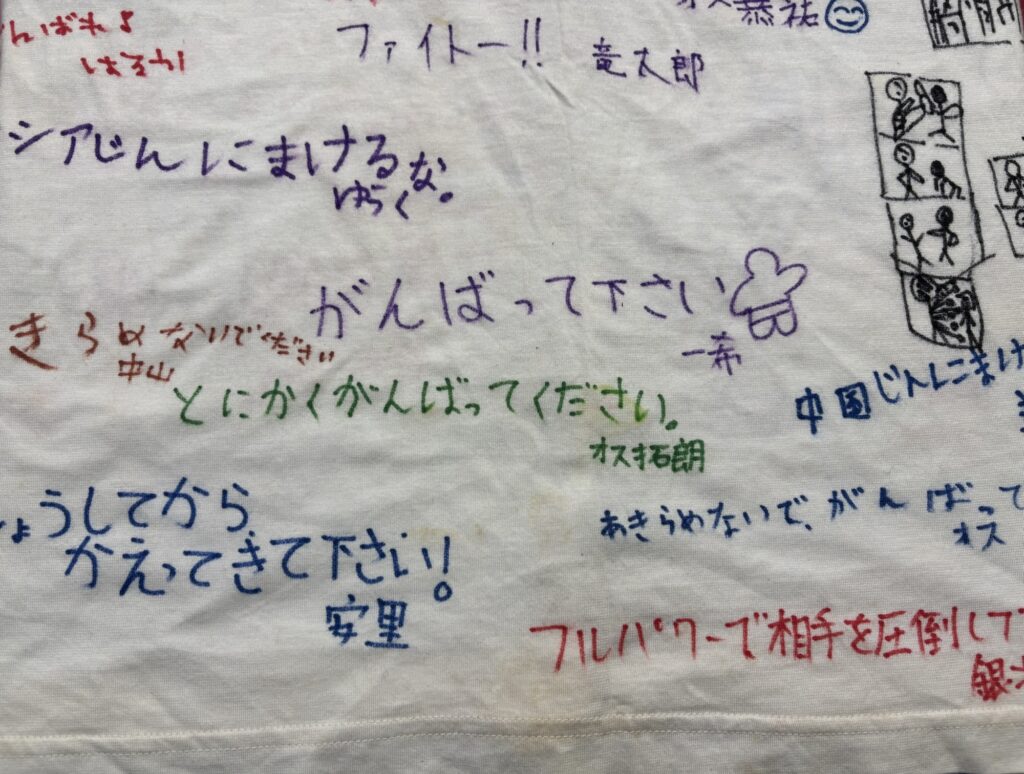 んばれよ
はるか
ファイトー!!
竜太郎
オス恭祐
シアじんにまけるな。
ゆうく
がんばって下さい
一希
きらめないでください
中山
とにかくがんばってください。
オス拓朗
中国じんにまけ
ょうしてから、
かえってきて下さい!
安里
あきらめないで、がんばって
オス
フルパワーで相手を圧倒して
銀次